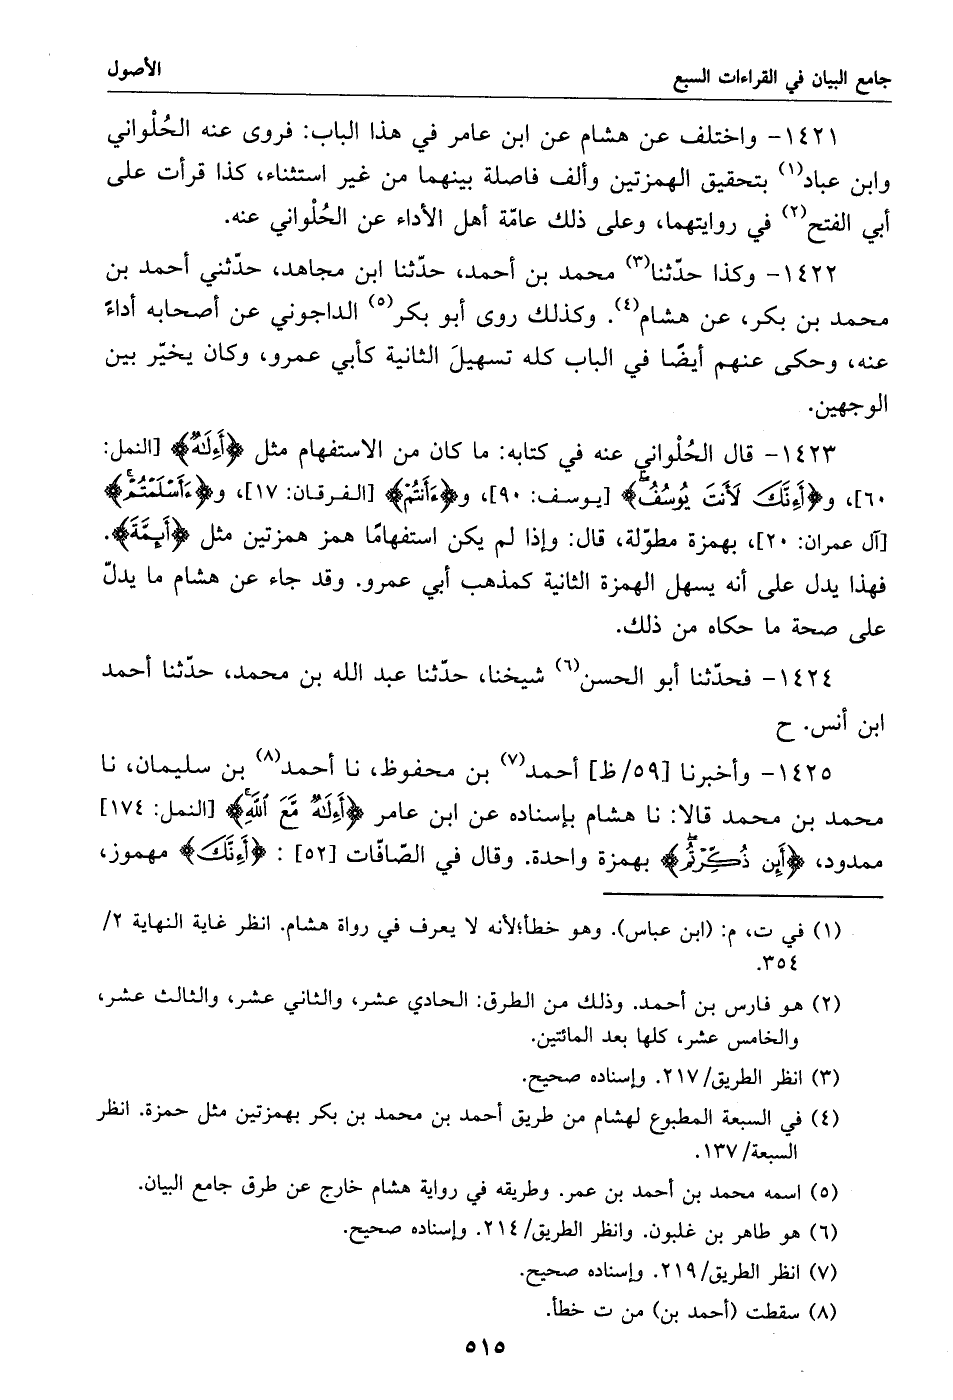 جامع البيان في القراءات السبع
الأصول
١٤٢١- واختلف عن هشام عن ابن عامر في هذا الباب: فروى عنه الحُلْواني
وابن عباد(١) بتحقيق الهمزتين وألف فاصلة بينهما من غير استثناء، كذا قرأت على
أبي الفتح(٢) في روايتهما، وعلى ذلك عامّة أهل الأداء عن الحُلْواني عنه.
١٤٢٢- وكذا حدّثنا(٣) محمد بن أحمد، حدّثنا ابن مجاهد، حدّثني أحمد بن
محمد بن بكر، عن هشام(٤). وكذلك روى أبو بكر(٥) الداجوني عن أصحابه أداءً
عنه، وحكى عنهم أيضًا في الباب كله تسهيلَ الثانية كأبي عمرو، وكان يخيّر بين
الوجهين.
١٤٢٣- قال الحُلْواني عنه في كتابه: ما كان من الاستفهام مثل ﴿أَءِلَٰهٌ﴾ [النمل:
٦٠]، و﴿أَءِنَّكَ لَأَنتَ يُوسُفُ﴾ [يوسف: ٩٠]، و﴿ءَأَنتُمْ﴾ [الفرقان: ١٧]، و﴿ءَأَسْلَمْتُمْ﴾
[آل عمران: ٢٠]، بهمزة مطوّلة، قال: وإذا لم يكن استفهامًا همز همزتين مثل ﴿أَئِمَّةَ﴾.
فهذا يدل على أنه يسهل الهمزة الثانية كمذهب أبي عمرو. وقد جاء عن هشام ما يدلّ
على صحة ما حكاه من ذلك.
١٤٢٤- فحدّثنا أبو الحسن(٦) شيخنا، حدّثنا عبد الله بن محمد، حدّثنا أحمد
ابن أنس. ح
١٤٢٥- وأخبرنا [٥٩/ظ] أحمد(٧) بن محفوظ، نا أحمد(٨) بن سليمان، نا
محمد بن محمد قالا: نا هشام بإسناده عن ابن عامر ﴿أَءِلَٰهٌ مَّعَ ٱللَّهِ﴾ [النمل: ١٧٤]
ممدود، ﴿أَئِن ذُكِّرْتُم﴾ بهمزة واحدة. وقال في الصّافات [٥٢] : ﴿أَءِنَّكَ﴾ مهموز،
(١) في ت، م: (ابن عباس). وهو خطأ؛لأنه لا يعرف في رواة هشام. انظر غاية النهاية ٢/
٣٥٤.
(٢) هو فارس بن أحمد. وذلك من الطرق: الحادي عشر، والثاني عشر، والثالث عشر،
والخامس عشر، كلها بعد المائتين.
(٣) انظر الطريق/٢١٧. وإسناده صحيح.
(٤) في السبعة المطبوع لهشام من طريق أحمد بن محمد بن بكر بهمزتين مثل حمزة. انظر
السبعة/١٣٧.
(٥) اسمه محمد بن أحمد بن عمر. وطريقه في رواية هشام خارج عن طرق جامع البيان.
(٦) هو طاهر بن غلبون. وانظر الطريق/٢١٤. وإسناده صحيح.
(٧) انظر الطريق/٢١٩. وإسناده صحيح.
(٨) سقطت (أحمد بن) من ت خطأ.
٥١٥